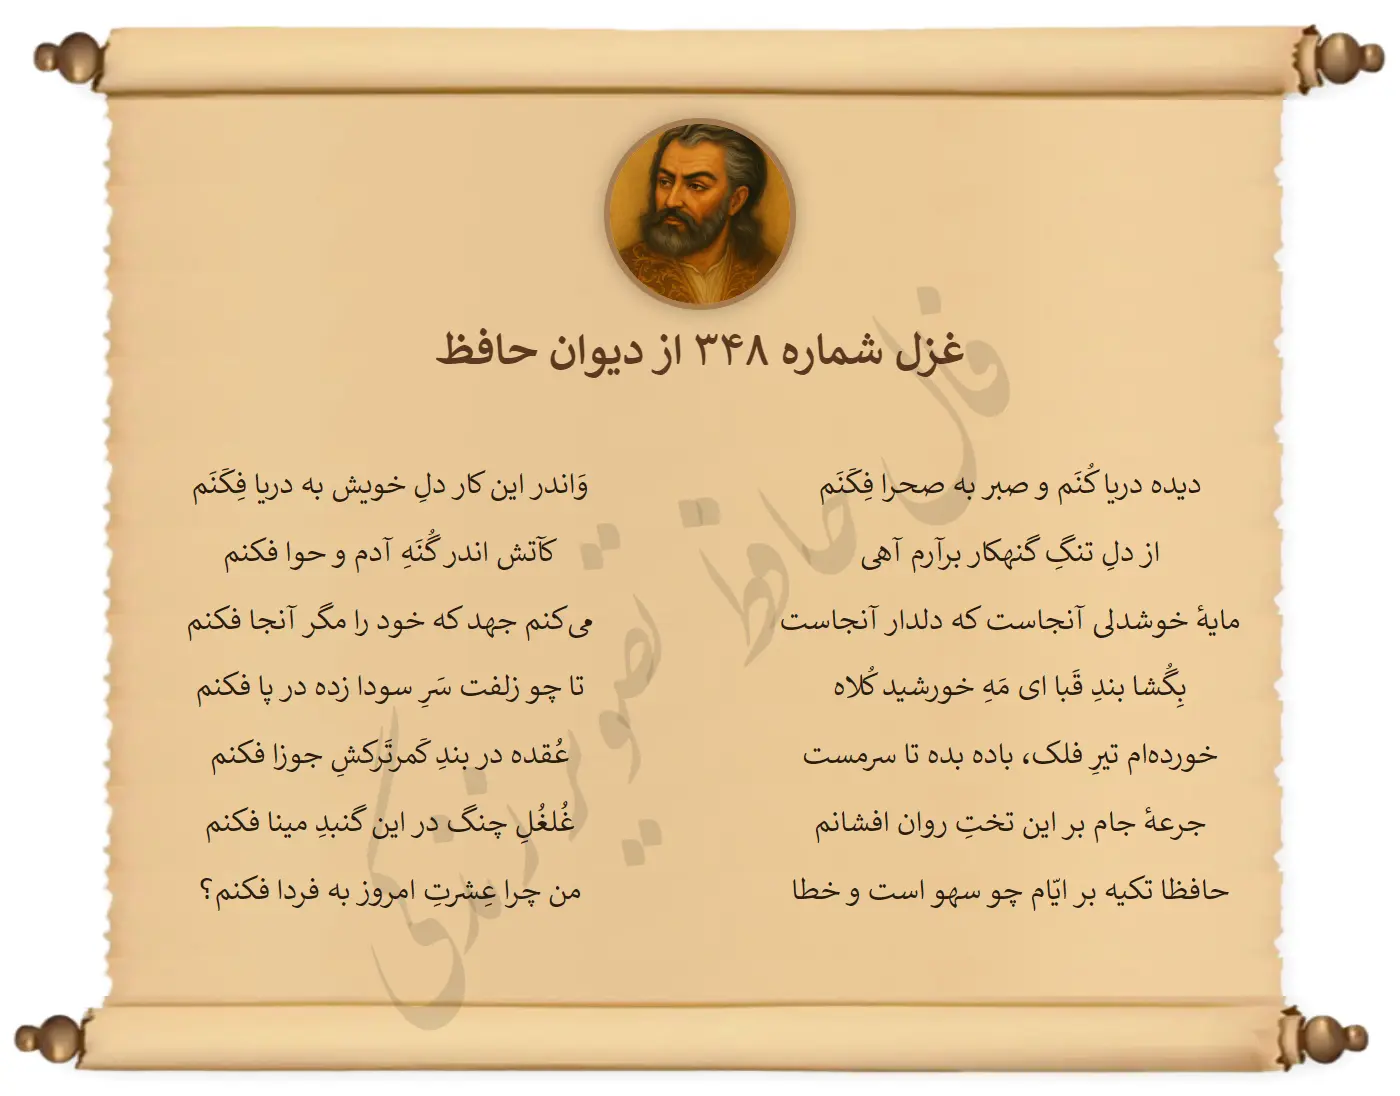 غزل شماره ۳۴۸ از دیوان حافظ
دیده دریا کُنَم و صبر به صحرا فِکَنَم
وَاندر این کار دلِ خویش به دریا فِکَنَم
از دلِ تنگِ گنهکار برآرم آهی
کآتش اندر گُنَهِ آدم و حوا فکنم
مایهٔ خوشدلی آنجاست که دلدار آنجاست
می‌کنم جهد که خود را مگر آنجا فکنم
بِگُشا بندِ قَبا ای مَهِ خورشید کُلاه
تا چو زلفت سَرِ سودا زده در پا فکنم
خورده‌ام تیرِ فلک، باده بده تا سرمست
عُقده در بندِ کَمرتَرکشِ جوزا فکنم
جرعهٔ جام بر این تختِ روان افشانم
غُلغُلِ چنگ در این گنبدِ مینا فکنم
حافظا تکیه بر ایّام چو سهو است و خطا
من چرا عِشرتِ امروز به فردا فکنم؟
فال حافظ تصویر زندگی